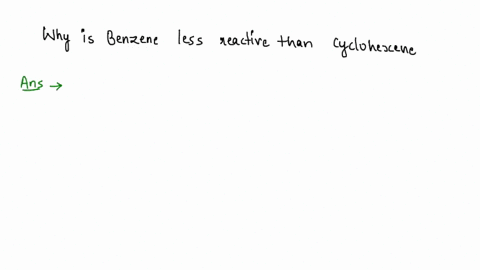 Why is Benzene less reactive than cyclohexene
Ans →